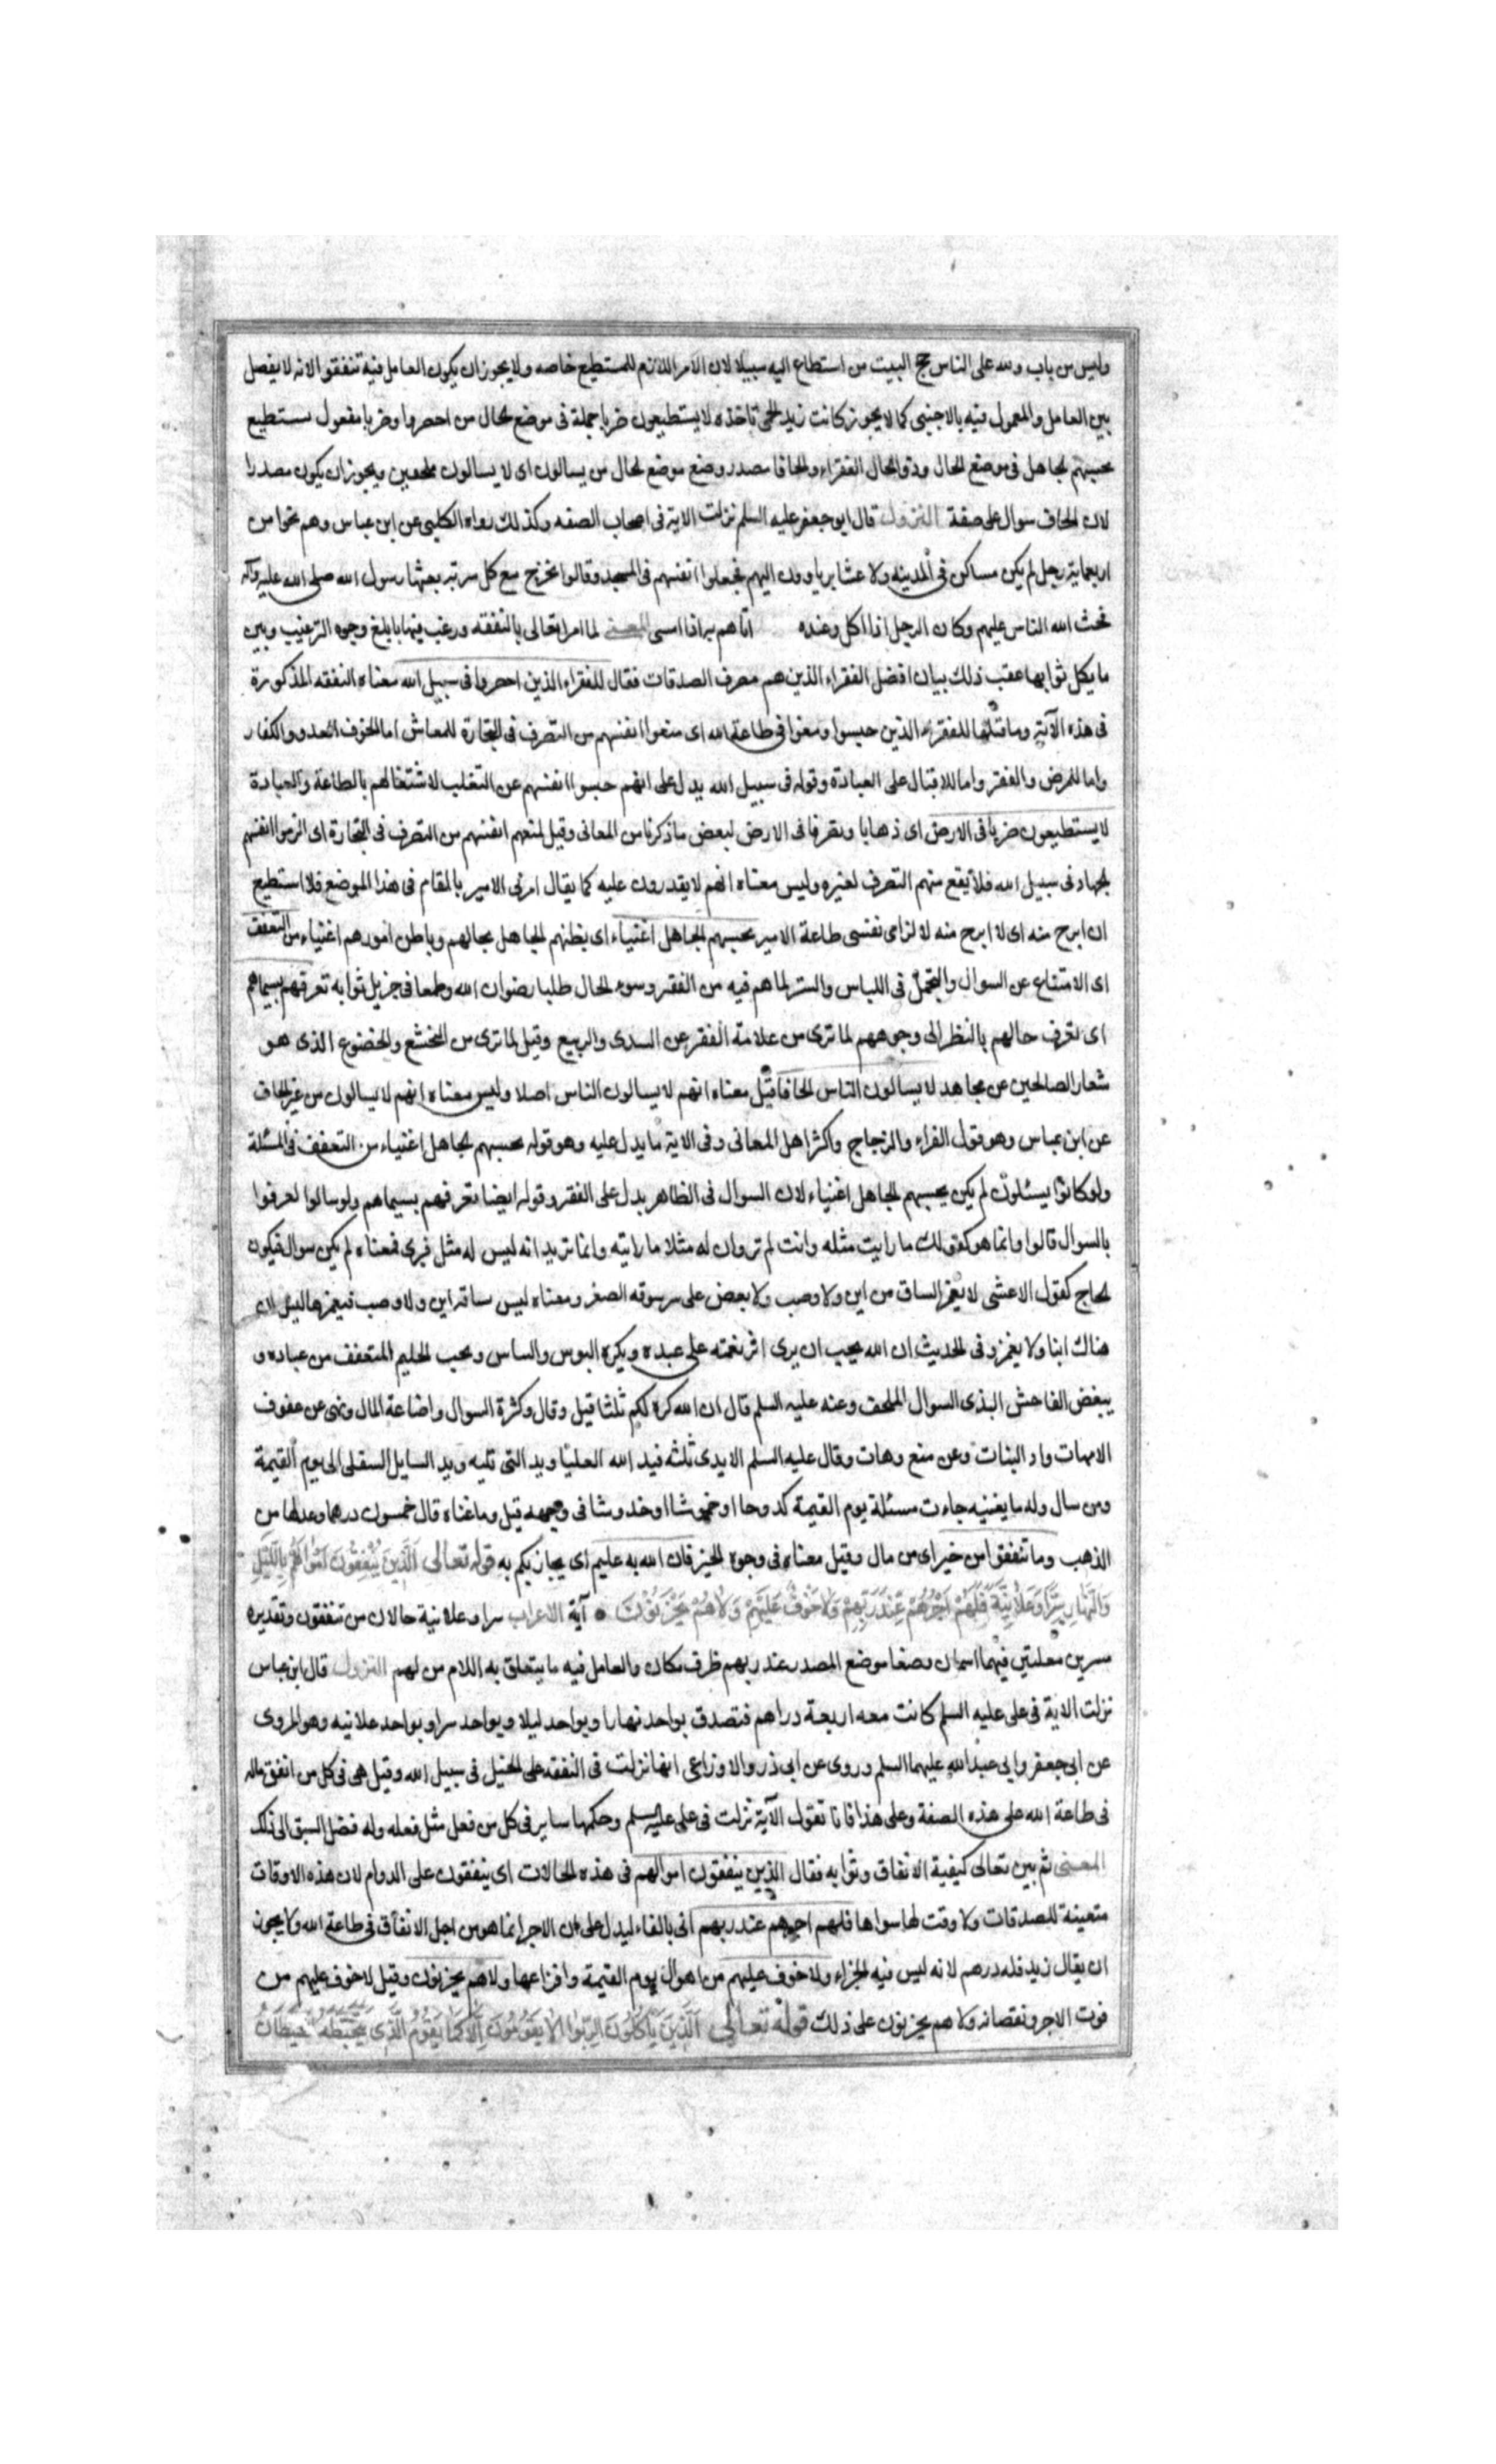 وليس من باب ولله على الناس حج البيت من استطاع اليه سبيلا لان الامر اللازم للمستطيع خاصه ولا يجوز ان يكون العامل فيه تنفقوا لانه لا يفصل
بين العامل والمعمول فيه بالاجنبى كما لا يجوز كانت زيد الحمى تاخذه لا يستطيعون ضربا جملة فى موضع الحال من احصروا وضربا مفعول يستطيع
يحسبهم الجاهل فى موضع الحال وذو الحال الفقراء والحافا مصدر وضع موضع الحال من يسالون اى لا يسالون ملحفين ويجوز ان يكون مصدرا
لان الحاف سوال على صفة النزول قال ابو جعفر عليه السلم نزلت الاية فى اصحاب الصفه وكذلك رواه الكلبى عن ابن عباس وهم نحوا من
اربعماية رجل لم يكن مساكن فى المدينه ولا عشاير ياوون اليهم فجعلوا انفسهم فى المسجد وقالوا نخرج مع كل سرية يبعثها رسول الله صلى الله عليه وآله
فحث الله الناس عليهم وكان الرجل اذا اكل وعنده اتاهم به اذا امسى المعنى لما امر تعالى بالنفقه ورغب فيها بابلغ وجوه الترغيب وبين
ما يكل ثوابها عقب ذلك بيان افضل الفقراء الذين هم مصرف الصدقات فقال للفقراء الذين احصروا فى سبيل الله معناه النفقه المذكورة
فى هذه الآية وما قبلها للفقراء الذين حبسوا ومنعوا فى طاعة الله اى منعوا انفسهم من التصرف فى التجارة للمعاش اما لخوف العدو والكفار
واما للمرض والفقر واما للاقبال على العبادة وقوله فى سبيل الله يدل على انهم حبسوا انفسهم عن التقلب لاشتغالهم بالطاعة والعبادة
لا يستطيعون ضربا فى الارض اى ذهابا وتصرفا فى الارض لبعض ما ذكرنا من المعانى وقيل لمنعهم انفسهم من التصرف فى التجارة اى الزموا انفسهم
الجهاد فى سبيل الله فلا يقع منهم التصرف لغيره وليس معناه انهم لا يقدرون عليه كما يقال امرنى الامير بالمقام فى هذا الموضع فلا استطيع
ان ابرح منه اى لا ابرح منه لالزامى نفسى طاعة الامير يحسبهم الجاهل اغنياء اى يظنهم الجاهل بحالهم وباطن امورهم اغنياء من التعفف
اى الامتناع عن السوال والتجمل فى اللباس والستر لما هم فيه من الفقر وسوء الحال طلبا رضوان الله وطمعا فى جزيل ثوابه تعرفهم بسيماهم
اى تعرف حالهم بالنظر الى وجوههم لما ترى من علامة الفقر عن السدى والربيع وقيل لما ترى من التخشع والخضوع الذى هو
شعار الصالحين عن مجاهد لا يسالون الناس الحافا قيل معناه انهم لا يسالون الناس اصلا وليس معناه انهم لا يسالون من غير الحاف
عن ابن عباس وهو قول الفراء والزجاج واكثر اهل المعانى وفى الاية ما يدل عليه وهو قوله يحسبهم الجاهل اغنياء من التعفف فى المسئلة
ولو كانوا يسئلون لم يكن يحسبهم الجاهل اغنياء لان السوال فى الظاهر يدل على الفقر وقوله ايضا تعرفهم بسيماهم ولو سالوا لعرفوا
بالسوال قالوا وانما هو كقولك ما رايت مثله وانت لم ترو ان له مثلا ما رايته وانما تريد انه ليس له مثل فيرى فمعناه لم يكن سوال فيكون
الحاح كقول الاعشى لا يغمز الساق من اين ولا وصب ولا يعض على شرسوفه الصفر ومعناه ليس ساقه اين ولا وصب فيغمزها ليس ان
هناك اينا ولا يغمز وفى الحديث ان الله يحب ان يرى اثر نعمته على عبده ويكره البوس والباس ويحب الحليم المتعفف من عباده و
يبغض الفاحش البذى السوال الملحف وعنه عليه السلم قال ان الله كره لكم ثلثا قيل وقال وكثرة السوال واضاعة المال ونهى عن عقوق
الامهات واد البنات وعن منع وهات وقال عليه السلم الايدى ثلثه فيد الله العليا ويد التى تليه ويد السايل السفلى الى يوم القيمة
ومن سال وله ما يغنيه جاءت مسئلة يوم القيمة كدوحا او خموشا او خدوشا فى وجهه قيل وما غناه قال خمسون درهما وعدلها من
الذهب وما تنفقوا من خير اى من مال وقيل معناه فى وجوه الخير فان الله به عليم اى يجازيكم به قوله تعالى الَّذِينَ يُنْفِقُونَ اَمْوَالَهُمْ بِاللَّيْلِ
وَالنَّهَارِ سِرًّا وَعَلَانِيَةً فَلَهُمْ اَجْرُهُمْ عِنْدَ رَبِّهِمْ وَلَا خَوْفٌ عَلَيْهِمْ وَلَا هُمْ يَحْزَنُونَ آية الاعراب سرا وعلانية حالان من تنفقون وتقديره
مسرين معلنين فهما اسمان وضعا موضع المصدر عند ربهم ظرف مكان والعامل فيه ما يتعلق به اللام من لهم النزول قال ابن عباس
نزلت الاية فى على عليه السلم كانت معه اربعة دراهم فتصدق بواحد نهارا وبواحد ليلا وبواحد سرا وبواحد علانيه وهو المروى
عن ابى جعفر وابى عبد الله عليهما السلم وروى عن ابى ذر والاوزاعى انها نزلت فى النفقه على الخيل فى سبيل الله وقيل هى فى كل من انفق ماله
فى طاعة الله على هذه الصفة وعلى هذا فانا نقول الآية نزلت فى على عليه السلم وحكمها ساير فى كل من فعل مثل فعله وله فضل السبق الى ذلك
المعنى ثم بين تعالى كيفية الانفاق وثوابه فقال الذين ينفقون اموالهم فى هذه الحالات اى ينفقون على الدوام لان هذه الاوقات
متعينة للصدقات ولا وقت لها سواها فلهم اجرهم عند ربهم اتى بالفاء ليدل على ان الاجر انما هو من اجل الانفاق فى طاعة الله ولا يجوز
ان يقال زيد فله درهم لانه ليس فيه الجزاء ولا خوف عليهم من اهوال يوم القيمة وافزاعها ولا هم يحزنون وقيل لا خوف عليهم من
فوت الاجر ونقصانه ولا هم يحزنون على ذلك قوله تعالى الَّذِينَ يَاْكُلُونَ الرِّبٰوا لَا يَقُومُونَ اِلَّا كَمَا يَقُومُ الَّذِى يَتَخَبَّطُهُ الشَّيْطَانُ